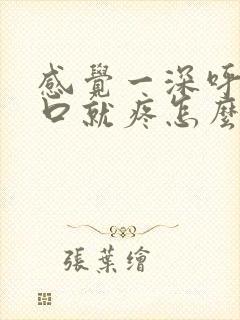 感覺一深呼
口就疼怎麼
張葉繪